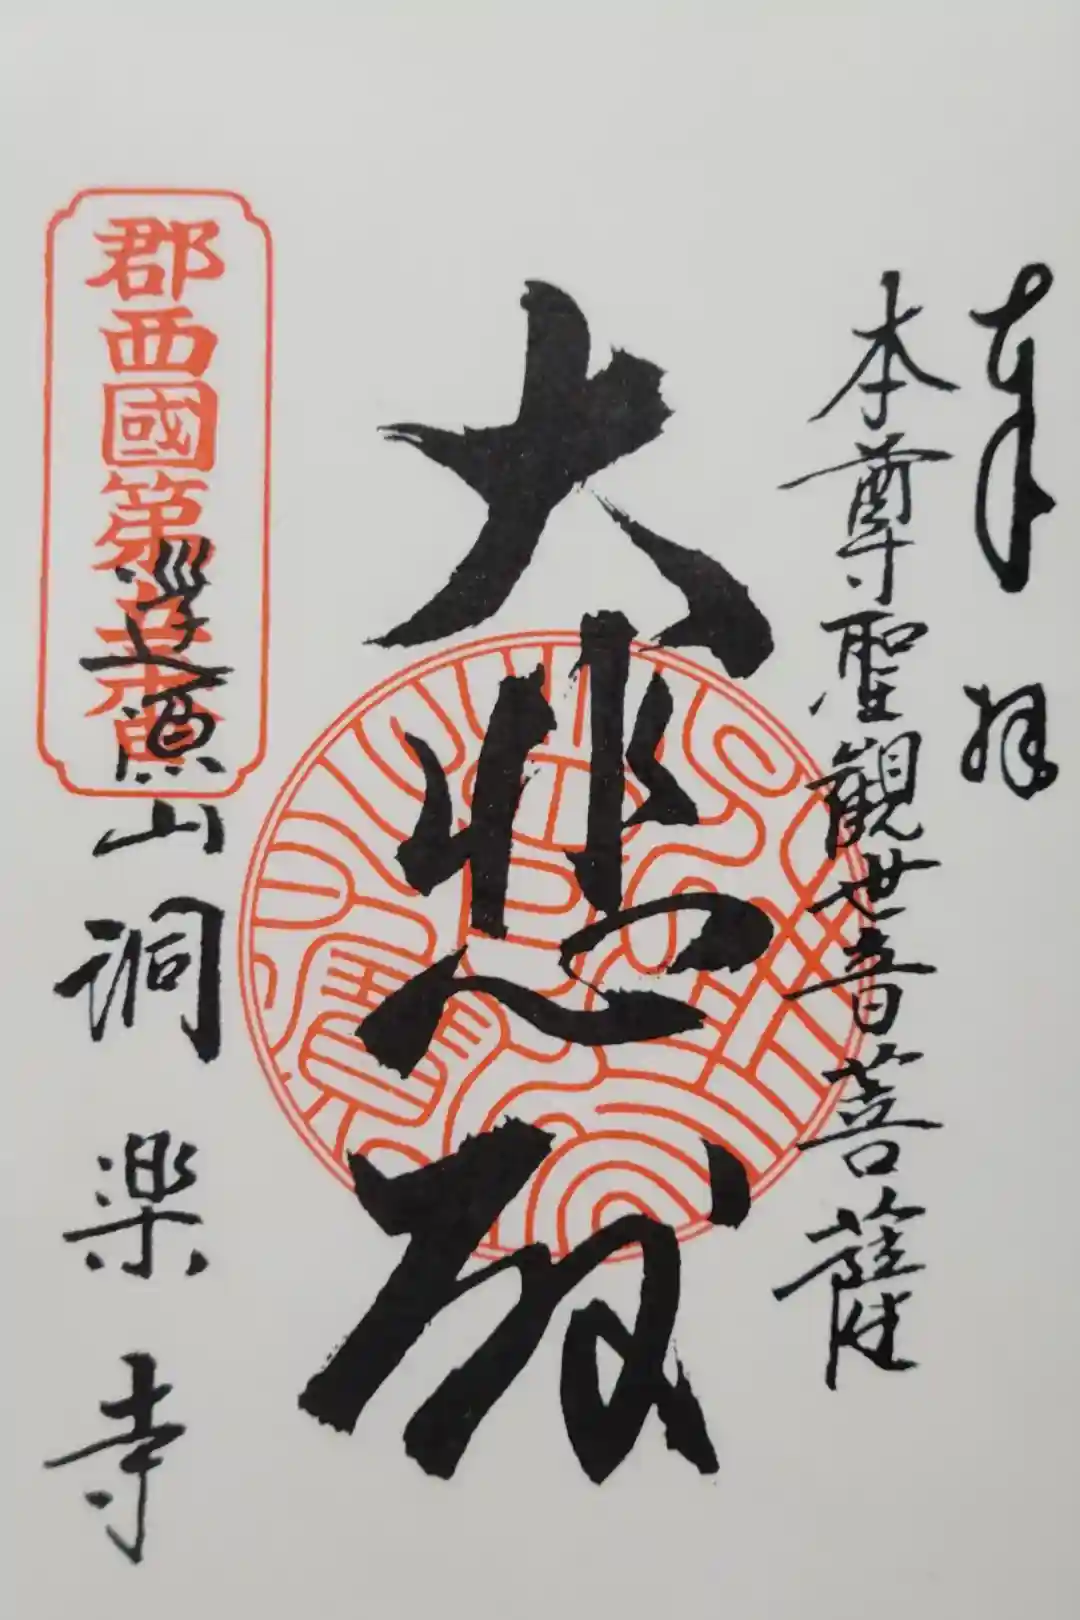 奉拝
本尊聖觀世音菩薩
大悲殿
郡西國第
山洞楽寺